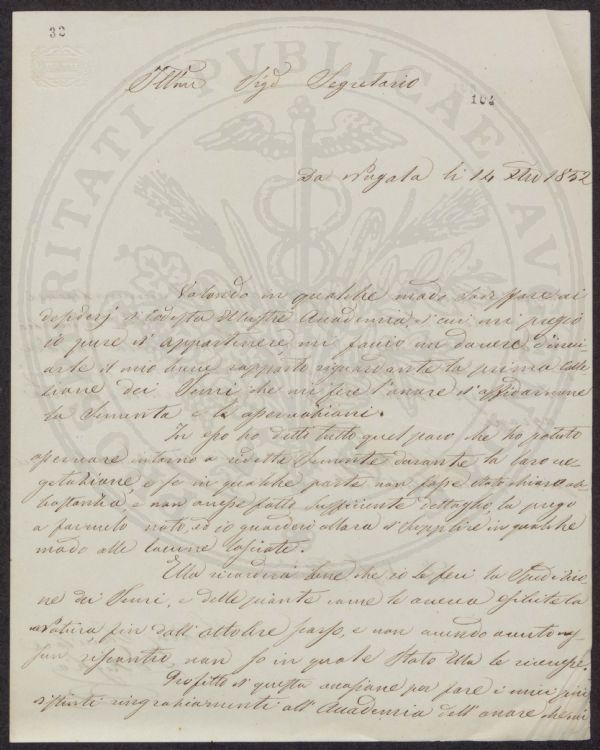 32
Illmo Sigr Segretario
104
Da Nugola li 14 Xbre 1852
Volendo in qualche modo soddisfare ai
desiderj di codesta Illustre Accademia di cui mi pregio
io pure di appartenere mi faccio un dovere d'inviarle
il mio rapporto riguardante la prima
dei Semi che mi fece l'onore d'affidarmene
la Sementa e le osservazioni.
In esso ho detto tutto quel poco che ho potuto
osservare intorno a dette Semente durante la loro ve
getazione, e se in qualche parte non fosse stato chiaro ab
bastanza, e non avesse fatto sufficiente dettaglio, la prego
a farmelo noto, ed io guarderò allora di supplire in qualche
modo alle lacune lasciate.
Ella ricorderà bene che io le feci la Spedizio
ne dei Semi, e delle piante come le aveva esibite la
Natura fin dall'ottobre passo, e non avendo avuto nes
sun riscontro non so in quale stato Ella le ricevesse.
Profitto di questa occasione per fare i miei più
distinti ringraziamenti all'Accademia dell'onore che mi